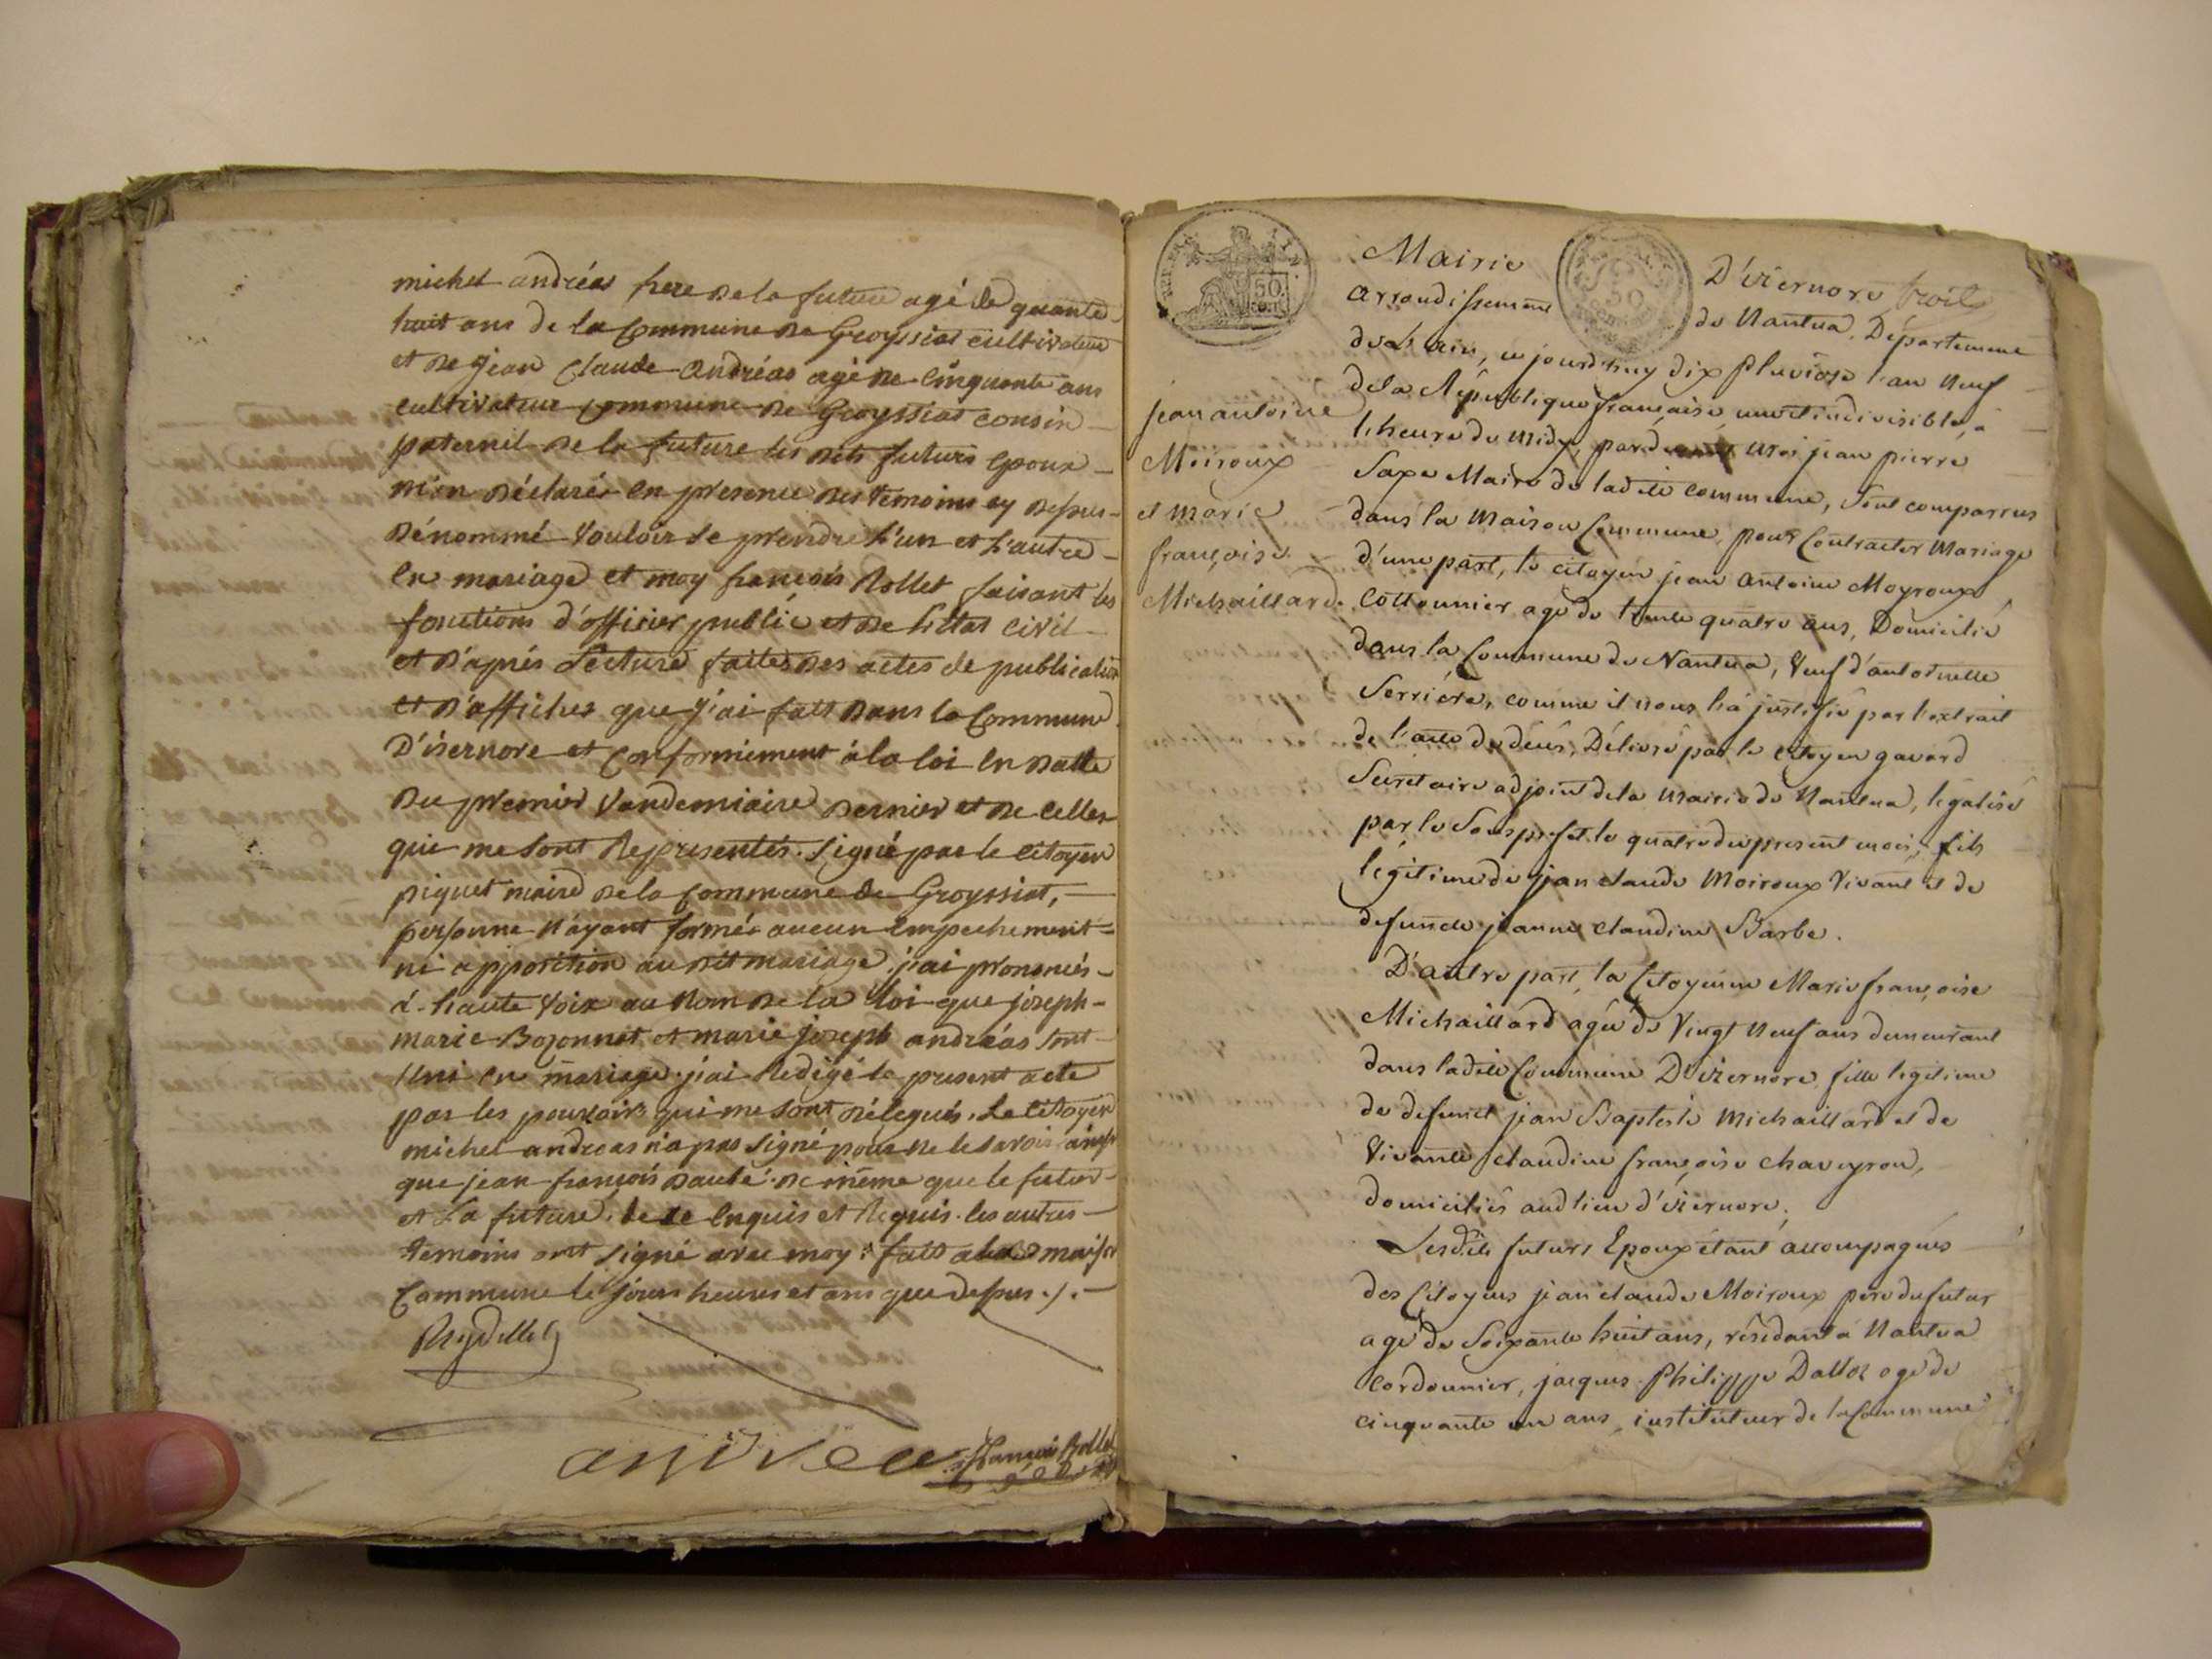 michel andréas frere de la future agé de quarante
huit ans de la Commune de Groyssiat cultivateur
et de Jean Claude andréas agé de Cinquante ans
cultivateur commune de Groyssiat cousin
paternel de la future les dits futurs epoux
m'on déclaré en presence des temoins cy dessus
dénommé vouloir se prendre l'un et l'autre
en mariage et moy françois Rollet faisant les
fonctions d'officier public et de l'Etat civil
et d'aprés Lecture faites des actes de publication
et d'affiches que j'ai fait dans la Commune
D'isernore et conformément à la loi en datte
du premier vandemiaire dernier et de celles
qui me sont Representés. signé par le citoyen
piquet maire de la commune de Groyssiat,
personne n'ayant formé aucun empechement
ni apposition au dit mariage j'ai prononcés
à haute voix au Nom de la loi que joseph
marie Bozonnet et marie joseph andréas sont
Unis en mariage j'ai Redigé le present acte
par les pouvoirs qui me sont délegués. Le citoyen
michel andreas n'a pas signé pour ne le savoir ainsy
que jean françois de même que le futur
et La future. de ce enquis et Requis. les autres
temoins ont signé avec moy. fait a la maison
Commune le jours heures et ans que dessus ./.
andrea
françois Rollet
50
Mairie D'izernore
arrondissement de Nantua, Département
de L'ain, ce jourd'huy dix pluviôse l'an Neuf
de la République française, une et indivisible, à
l'heure de midy, pardevant moi jean pierre
Saxe Maire de ladite commune, Sont comparrus
dans la maison Commune, pour Contracter Mariage
d'une part, le citoyen jean antoine Moyroux
Cottonnier agé de trente quatre ans, Domicilié
dans la Commune de Nantua, Veuf d'antoinette
Serriére, comme il nous l'a justifié par l'extrait
de l'acte de décés, Délivré par le Citoyen gavard
Secretaire adjoint de la Mairie de Nantua, légalisé
par le Sous préfet le quatre du present mois, fils
légitime de jean claude Moiroux Vivant et de
defuncte jeanne claudine Barbe.
D'autre part, la Citoyenne Marie françoise
Michaillard agée de Vingt Neuf ans demeurant
dans ladite Commune D'izernore, fille legitime
de defunct jean Baptiste Michaillard et de
Vivante claudine françoise Chaveyron,
domiciliés audlieu d'izernore.
Lesdits futurs Epoux étant accompagnés
des Citoyens jean claude Moiroux père du futur
agé de Soixante huit ans, résidant à Nantua
Cordonnier, jacques Philippe Dalloz agé de
cinquante un ans, instituteur de la Commune
jean antoine
Moiroux
et marie
françoise
Michaillard.